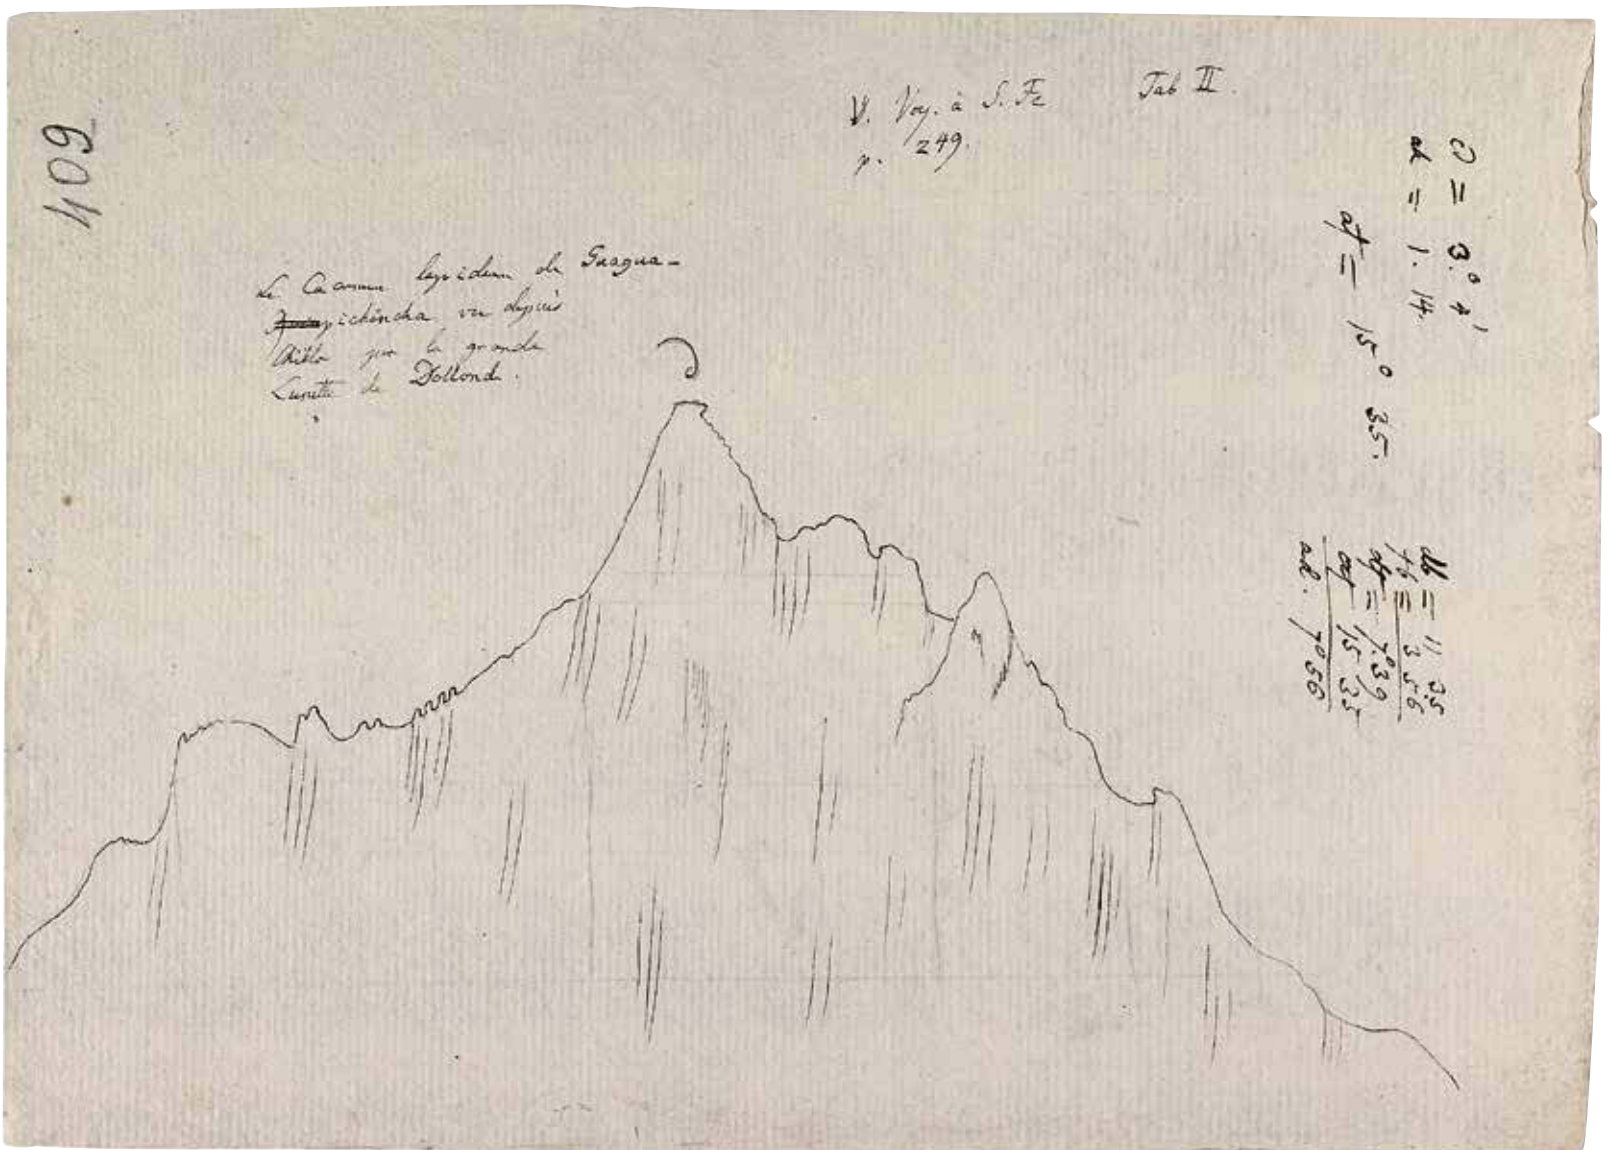 409
V. Voy. à S. Fe Tab II.
p. 249.
Le Cacumen lapideum de Guagua-
pichincha vu depuis
Chillo par la grande
Lunette de Dollond.
= 3.° 4'
= 1. 14.
af = 15° 35.
db = 11 35
fb = 3 56
df = 7°.39
af 15 35
ad. 7° 56